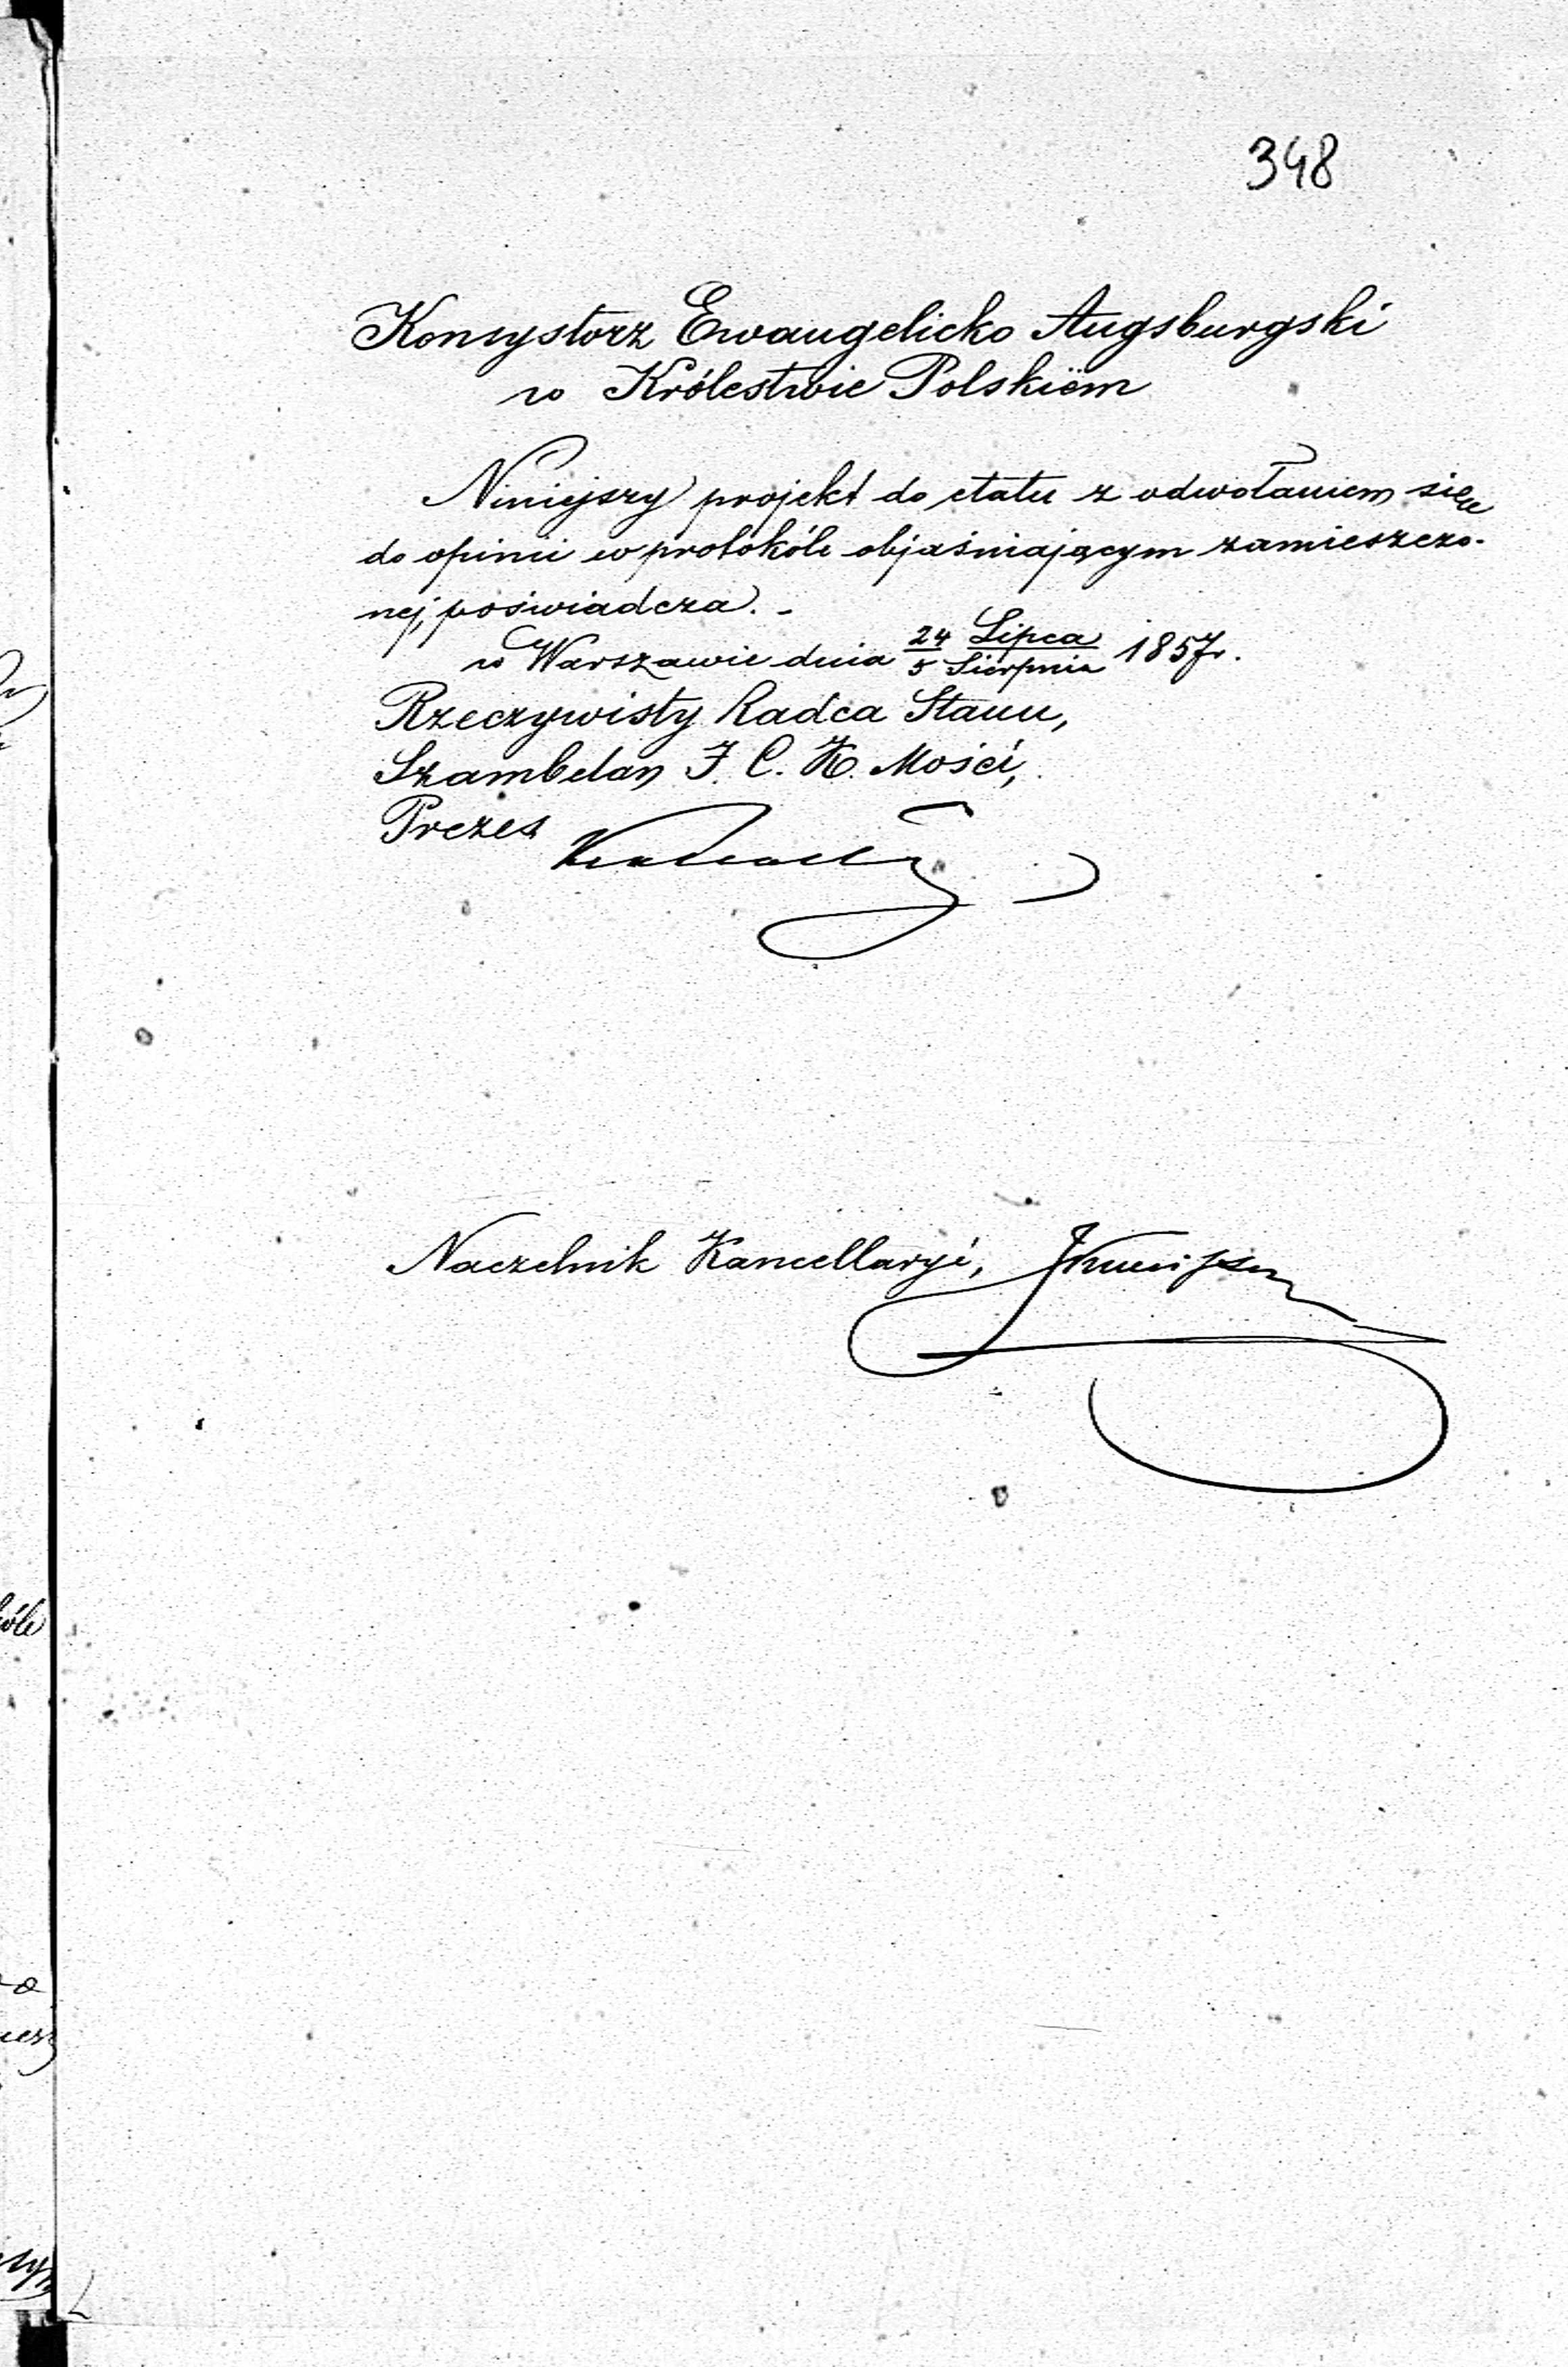 348
Konsystorz Ewangelicko Augsburgski
w Królestwie Polskiém
Niniejszy projekt do etatu z odwołaniem się
do opinii w protokóle objaśniającym zamieszczo-
nej, poświadcza. -
w Warszawie dnia 24/5 Lipca/Sierpnia 1857 r.
Rzeczywisty Radca Stanu,
Szambelan J. C. K. Mości,
Prezes
Naczelnik Kancellaryi,